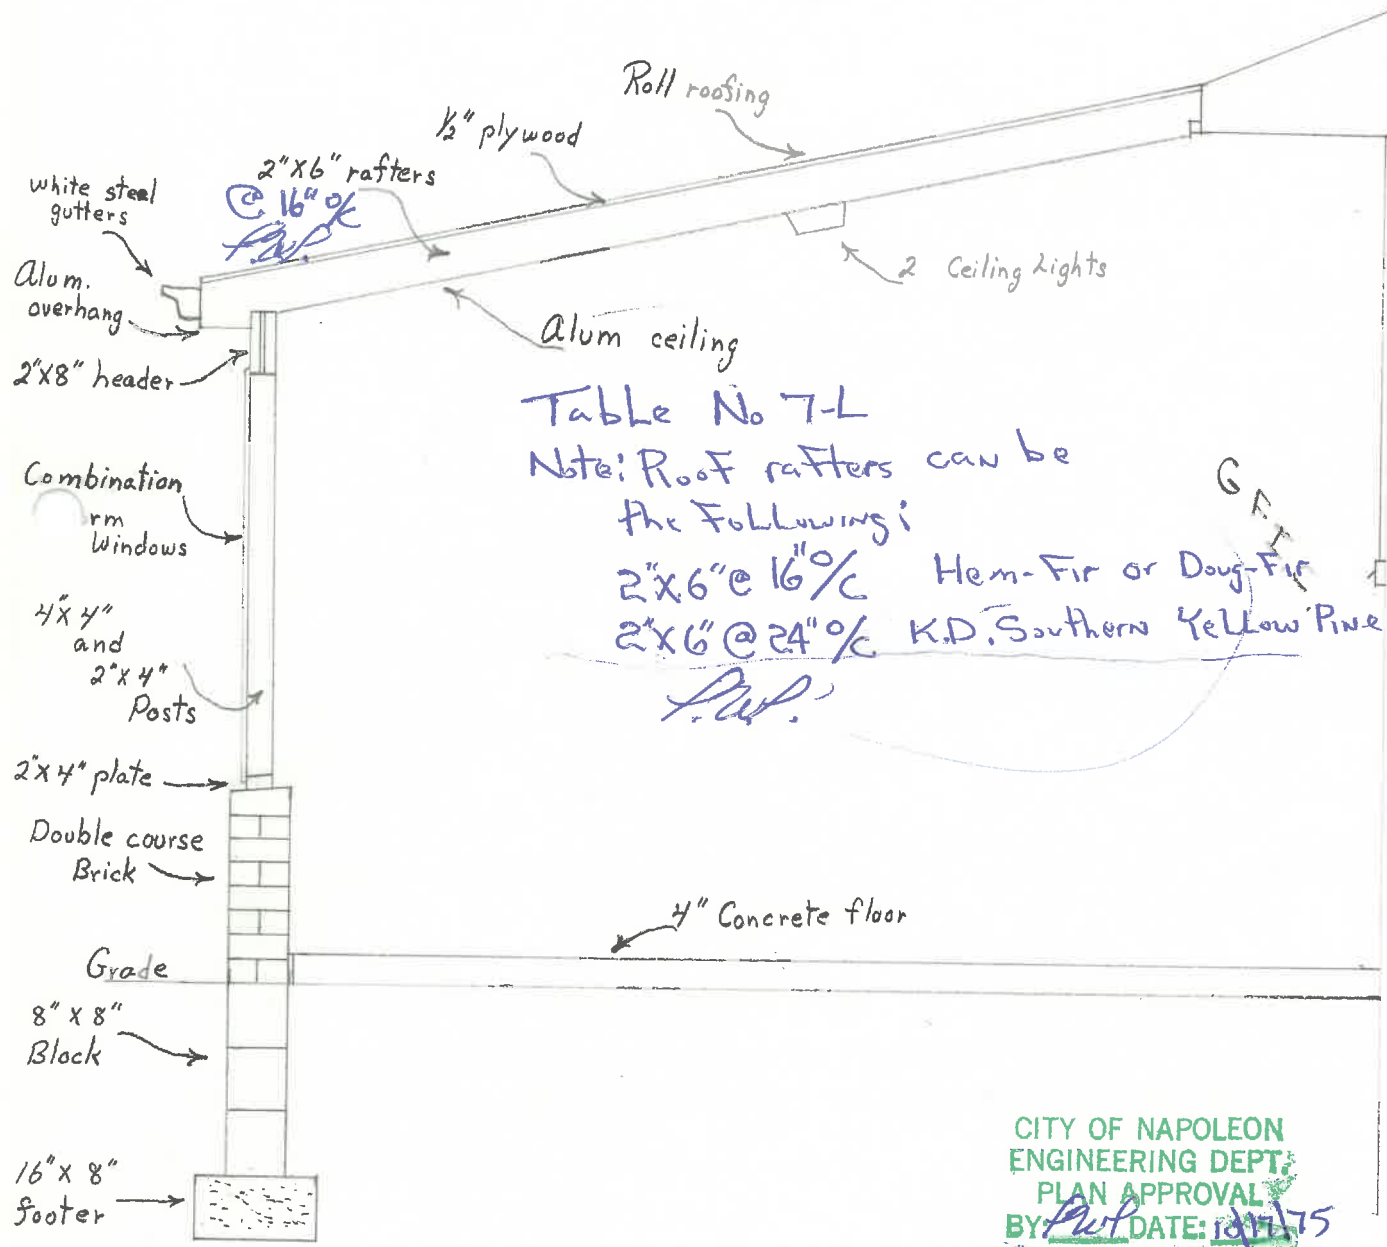 Roll roofing
1/2" plywood
2"X6" rafters
@ 16" o/c
white steel
gutters
Alum.
overhang
2 Ceiling Lights
Alum ceiling
2"X8" header
Table No 7-L
Note: Roof rafters can be
the Following:
2"x6"@ 16" o/c Hem-Fir or Doug-Fir
2"X6" @ 24" o/c K.D. Southern Yellow Pine
Combination
rm
Windows
4"X4"
and
2"X4"
Posts
2"X4" plate
Double course
Brick
4" Concrete floor
Grade
8" X 8"
Block
16" X 8"
footer
CITY OF NAPOLEON
ENGINEERING DEPT.
PLAN APPROVAL
BY: DATE: 10/17/75